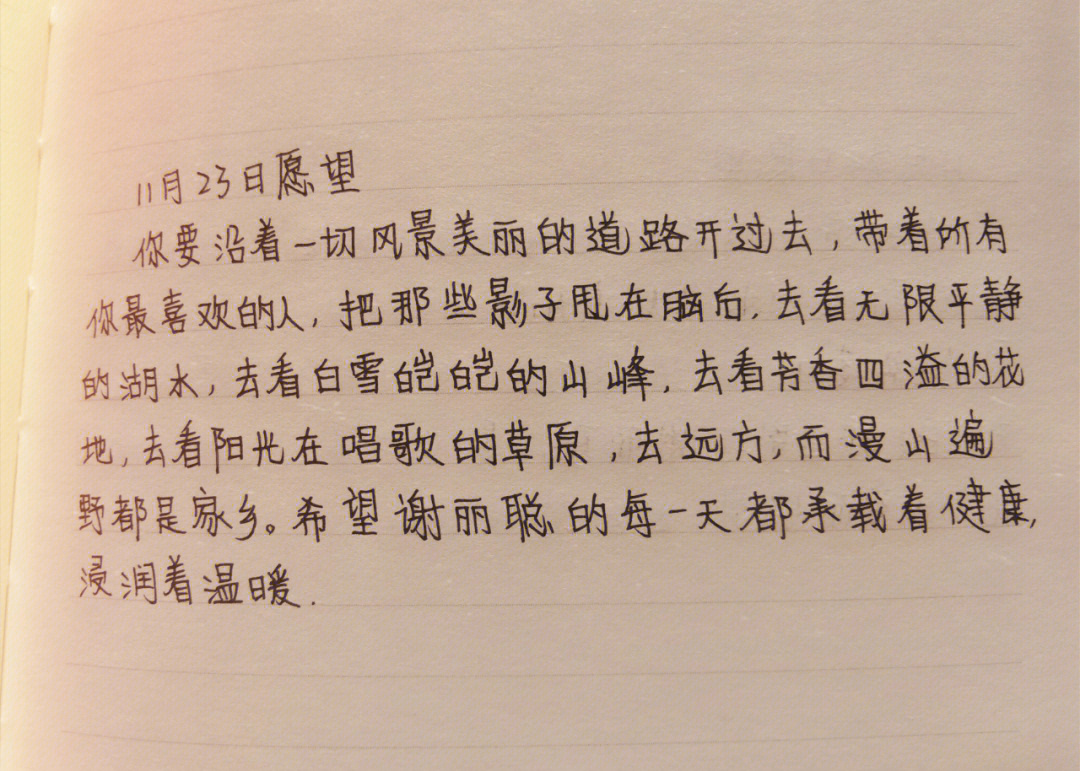 11月23日愿望
你要沿着一切风景美丽的道路开过去,带着所有
你最喜欢的人,把那些影子甩在脑后.去看无限平静
的湖水,去看白雪皑皑的山峰.去看芳香四溢的花
地,去看阳光在唱歌的草原,去远方,而漫山遍
野都是家乡。希望谢丽聪的每一天都承载着健康,
浸润着温暖.